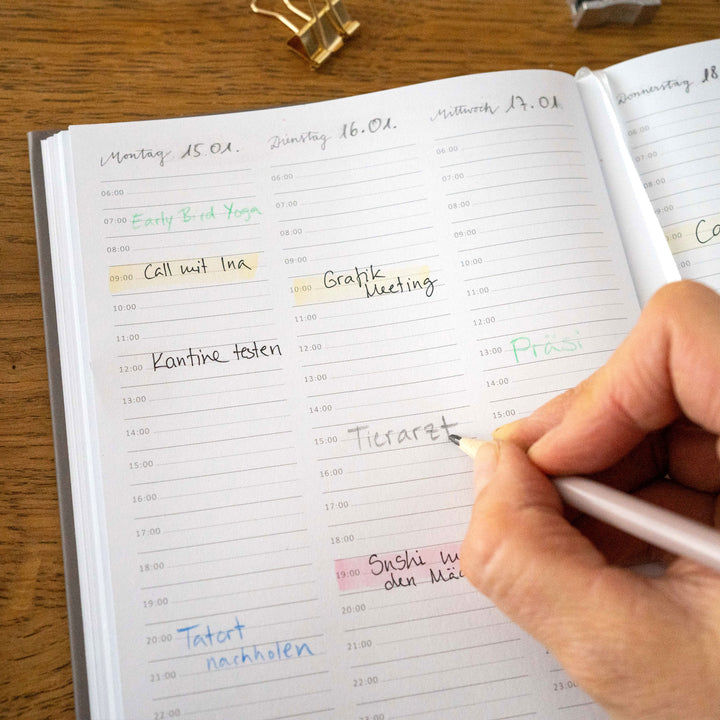 Montag 15.01.
06:00
07:00 Early Bird Yoga
08:00
09:00 Call mit Ina
10:00
11:00
12:00 Kantine testen
13:00
14:00
15:00
16:00
17:00
18:00
19:00
20:00 Tatort
nachholen
21:00
22:00
Dienstag 16.01.
06:00
07:00
08:00
09:00
10:00 Grafik
Meeting
11:00
12:00
13:00
14:00
15:00 Tierarzt
16:00
17:00
18:00
19:00 Sushi
den
20:00
21:00
22:00
23:00
Mittwoch 17.01.
06:00
07:00
08:00
09:00
10:00
11:00
12:00
13:00 Präsi
14:00
15:00
23:00
Donnerstag 18
06:00
07:00
08:00
:00
:00